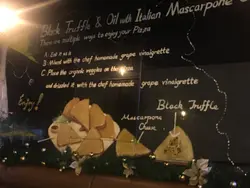 Black Truffle & Oil with Italian Mascarpone
There are multiple ways to enjoy your Pizza
A. Eat it as is
B. Mixed with the chef homemade grape vinaigrette
C. Place the organic veggies on the
and drizzled it with the chef homemade grape vinaigrette
Enjoy!
Black Truffle
Mascarpone